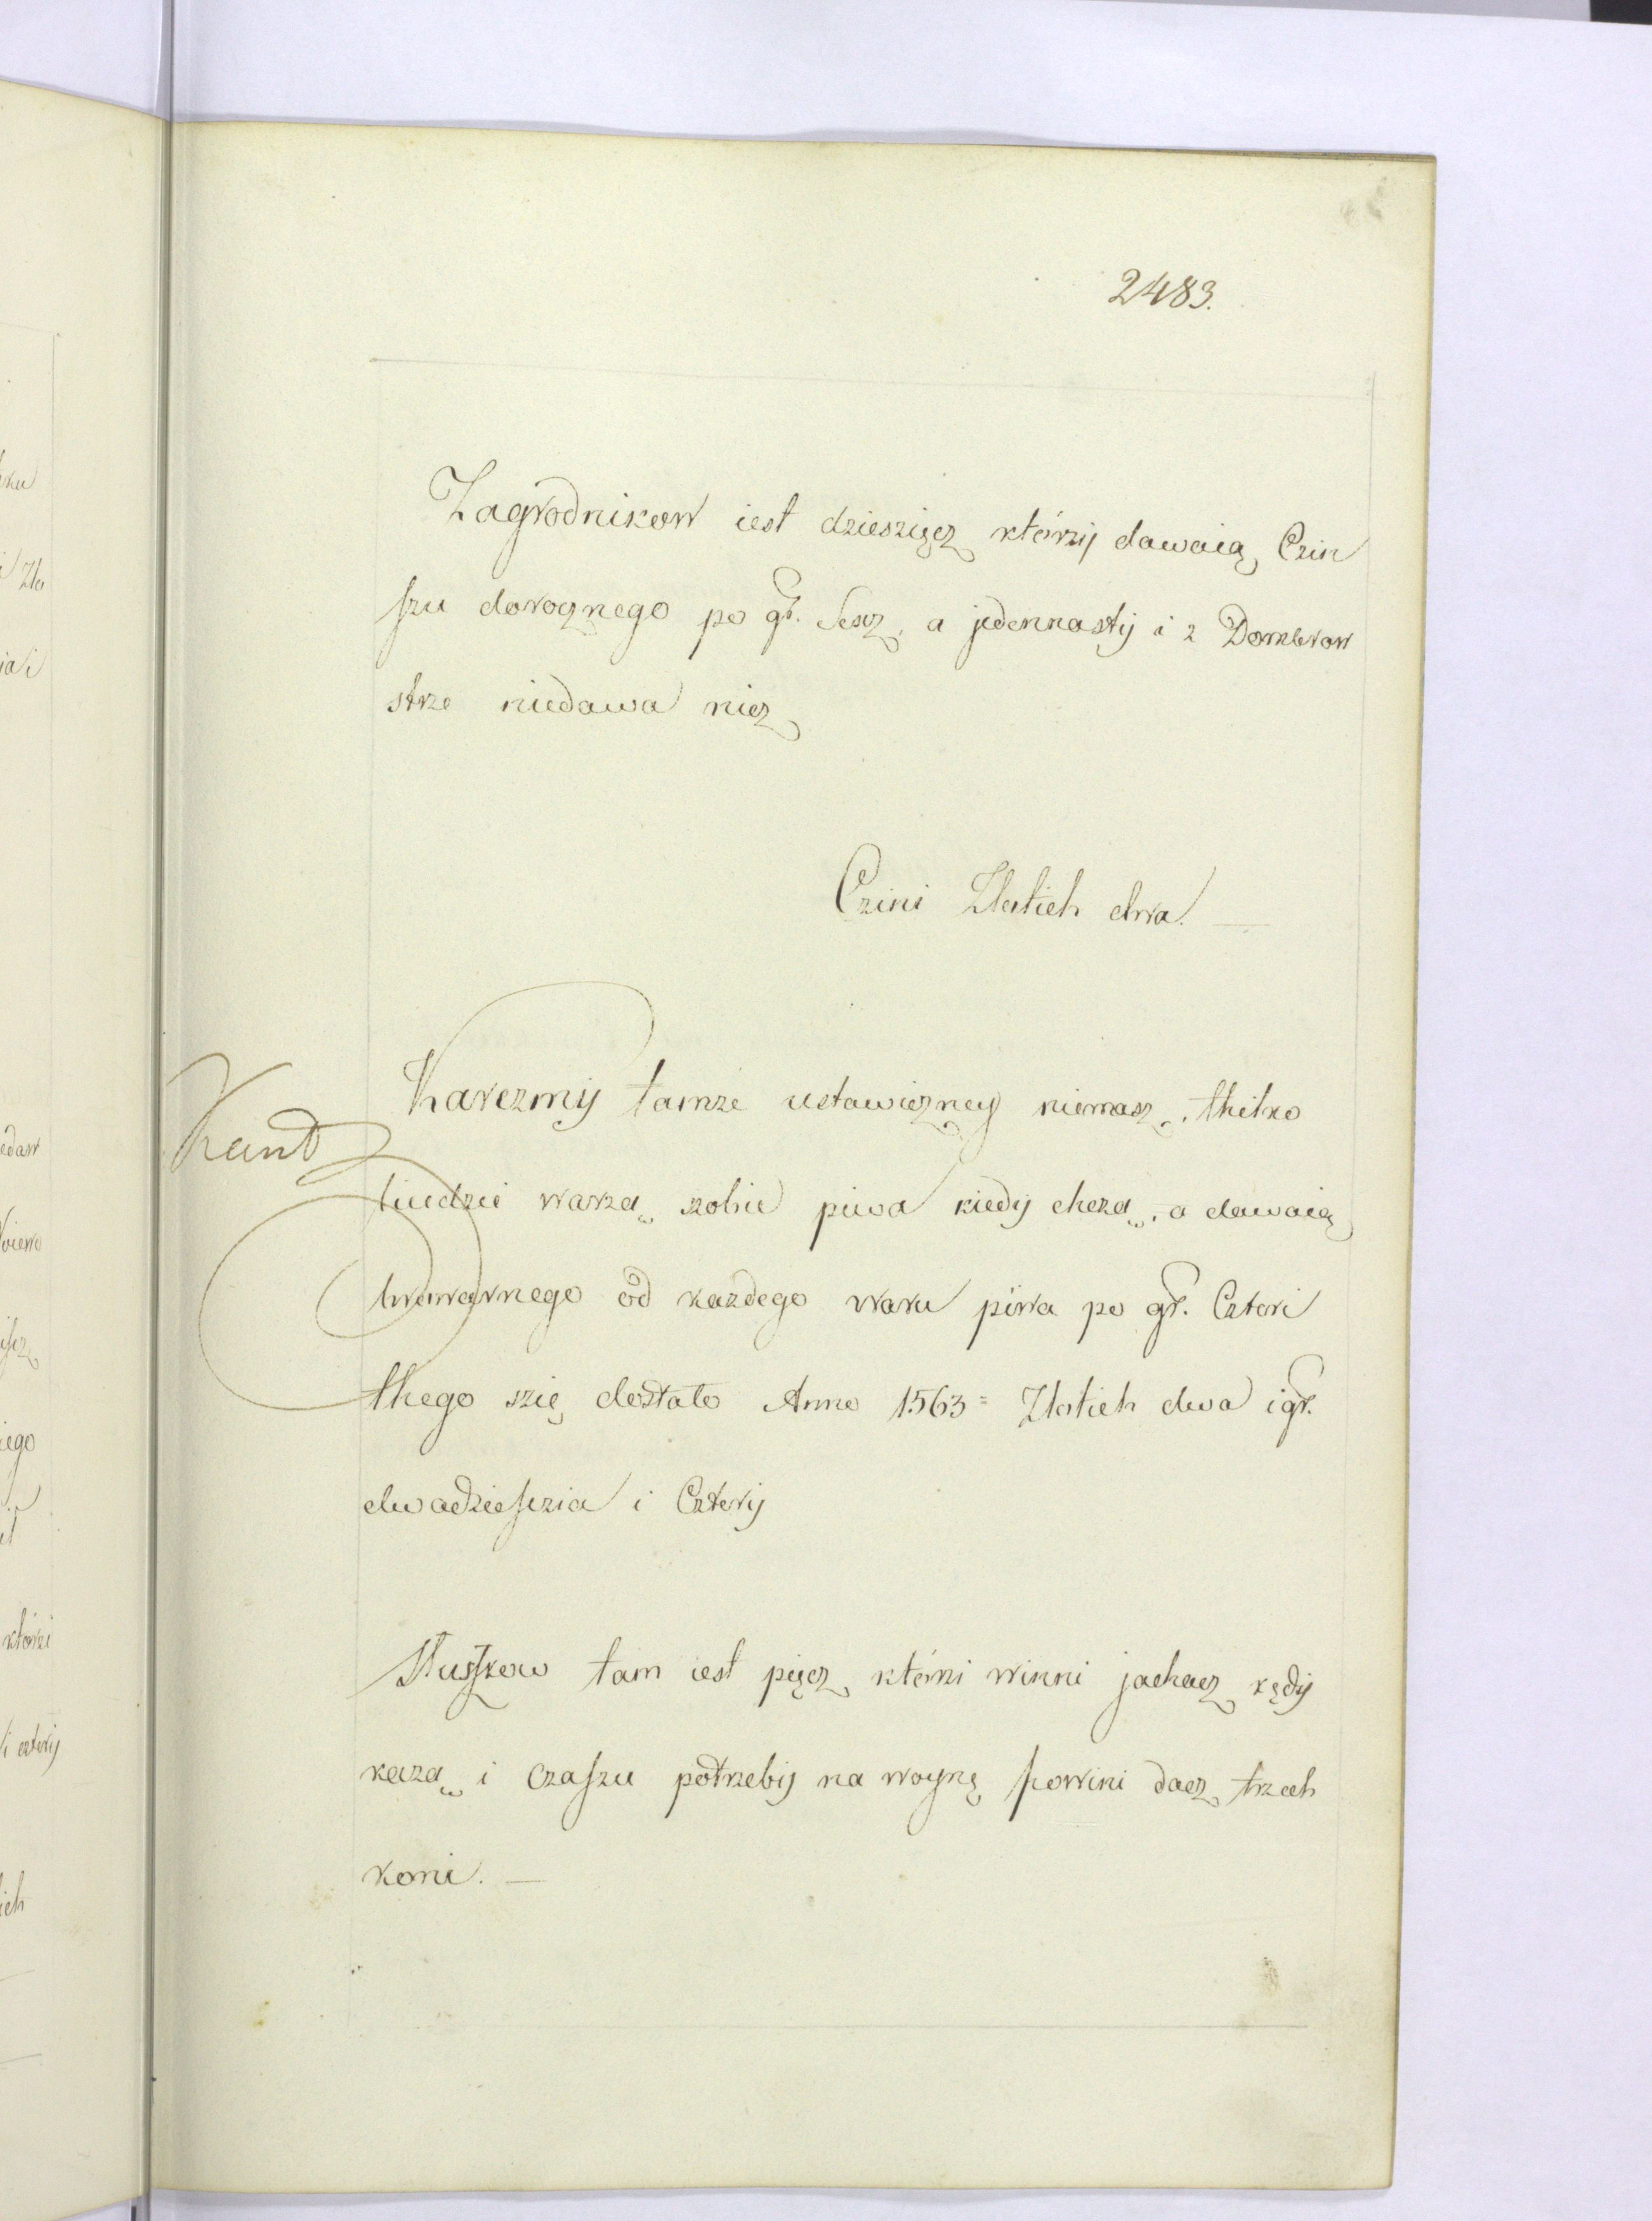 2483.
Zagrodnikow iest dziesziącz którzij dawaią Czin
szu dorocznego po gr. Sesz, a jedennastij i z Dombrow
strze niedawa nicz
Czini Zlotich dwa.
Karczmij tamze ustawiczney niemasz, thilko
Kunt
liudzie warzą szobie piwa kiedij chczą, a dawaią
browarnego od każdego waru piwa po gr. Czteri
thego szię dostało Anno 1563 = Zlotich dwa i gr.
dwadzieszcia i Czterij
Słuszkow tam iest pięcz, którzi winni jachacz kędij
każą i czaszu potrzebij na woynę powini dacz trzech
koni.